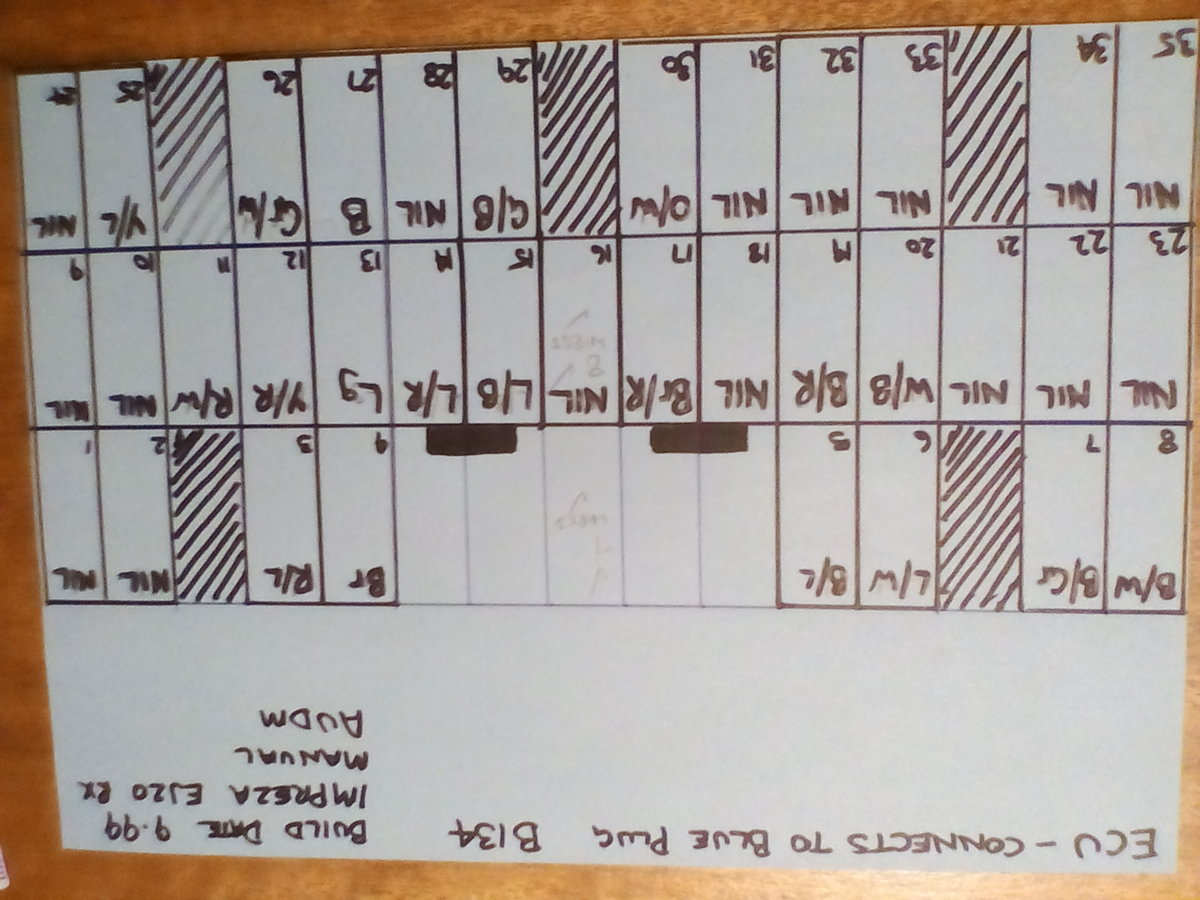 ECU - CONNECTS TO BLUE PLUG B134 BUILD DATE 9.99
IMPREZA EJ20 RX
MANUAL
AUDM
B/W B/Gr L/W B/L Br R/L NIL NIL
WIRES
8 7 6 5 4 3 2 1
NIL NIL NIL W/B B/R NIL Br/R NIL L/B L/R Lg Y/R R/W NIL NIL
8
WIRES
23 22 21 20 19 18 17 16 15 14 13 12 11 10 9
NIL NIL NIL NIL NIL O/W G/B NIL B Gr/W Y/L NIL
35 34 33 32 31 30 29 28 27 26 25 24